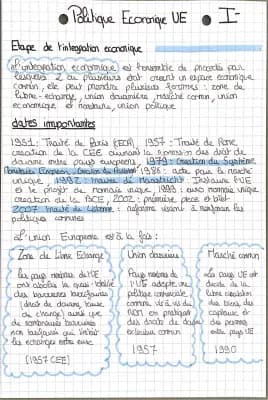 Politique Economique UE I-
Etape de l'integration economique
L'integration economique est l'ensemble de procédés par
lesquels 2 ou plusieurs état créent un espace économique
commun, elle peut prendre plusieurs formes : zone de
libre-échange, union douanière, marché commun, union
economique et monétaire, union politique
dates importantes
1951: Traité de Paris (CECA), 1957: Traité de Rome
création de la CEE suivant la suppression des droit de
douane entre pays européens, 1979: Création du Système
Monétaire Européen, 1986: acte pour le marché
unique, 1992: Traité de Maastricht: UE
et le projet de monnaie unique, 1999: euro monnaie unique
création de la BCE, 2002: première pièce et billet
2007 Traité de Lisbonne: réforme visant à renforcer les
politiques communes
L'union Européenne est à la fois:
Zone de Libre Echange
les pays membres de l'UE
ont abolis la quasi-totalité
des barrières tarifaires
(droit de douane, taxe
de change) ainsi que
de nombreuses barrières
non tarifaires qui limitait
les échanges entre eux
(1957 CEE)
Union douanière
Pays membres de
l'UE adopte une
politique commerciale
commune vis à vis des
NON en pratiquant
des droits de douane
extérieur commun
1957
Marché commun
Les pays UE ont
décidé de la
libre circulation
des biens, des
capitaux et
des personnes
entre pays UE
1990